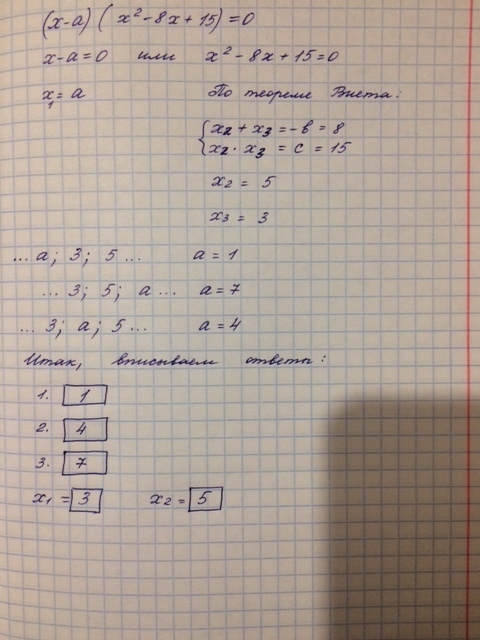 (x-a) (x² - 8x + 15) = 0
x-a=0 или x² - 8x + 15 = 0
x₁ = a По теореме Виета:
{ x₂ + x₃ = -в = 8
x₂ · x₃ = c = 15
x₂ = 5
x₃ = 3
... a; 3; 5 ... a = 1
... 3; 5; a ... a = 7
... 3; a; 5 ... a = 4
Итак, вписываем ответы:
1. 1
2. 4
3. 7
x₁ = 3 x₂ = 5